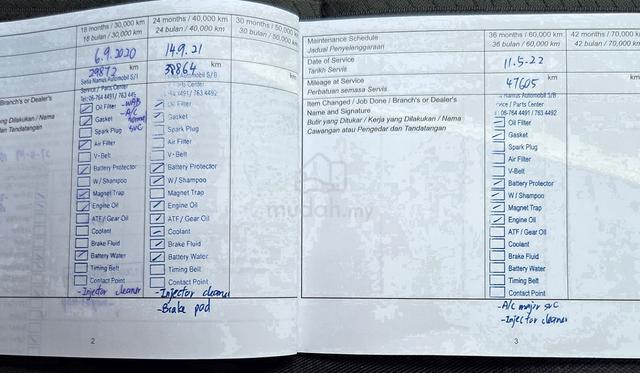 18 months / 30,000 km
18 bulan / 30,000 km
24 months / 40,000 km
24 bulan / 40,000 km
30 months / 50,000
30 bulan / 50,000
6.9.2020
14.9.21
29872 km
38864 km
Setia Namus Automobil S/B
Service / Parts Center
Tel:06-764 4491 / 763 445
Branch's or Dealer's
ng Dilakukan / Nama
an Tandatangan
Oil Filter
Gasket
Spark Plug
Air Filter
V-Belt
Battery Protector
W / Shampoo
Magnet Trap
Engine Oil
ATF/ Gear Oil
Coolant
Brake Fluid
Battery Water
Timing Belt
Contact Point
-A/C
svc
-Injector cleaner
utomobil S/B
Parts Center
764 4491 / 763 4492
Oil Filter
Gasket
Spark Plug
Air Filter
V-Belt
Battery Protector
W / Shampoo
Magnet Trap
Engine Oil
ATF / Gear Oil
Coolant
Brake Fluid
Battery Water
Timing Belt
Contact Point
-Injector cleaner
-Brake pad
km
2
mudah.my
Maintenance Schedule
Jadual Penyelenggaraan
36 months / 60,000 km
36 bulan / 60,000 km
42 months / 70,00
42 bulan / 70,00
Date of Service
Tarikh Servis
11.5.22
Mileage at Service
Perbatuan semasa Servis
47605 km
Item Changed / Job Done / Branch's or Dealer's
Name and Signature
Butir yang Ditukar / Kerja yang Dilakukan / Nama
Cawangan atau Pengedar dan Tandatangan
Namus Automobil S/B
rvice / Parts Center
: 06-764 4491 / 763 4492
Oil Filter
Gasket
Spark Plug
Air Filter
V-Belt
Battery Protector
W / Shampoo
Magnet Trap
Engine Oil
ATF / Gear Oil
Coolant
Brake Fluid
Battery Water
Timing Belt
Contact Point
-A/C major svc
-Injector cleaner
3